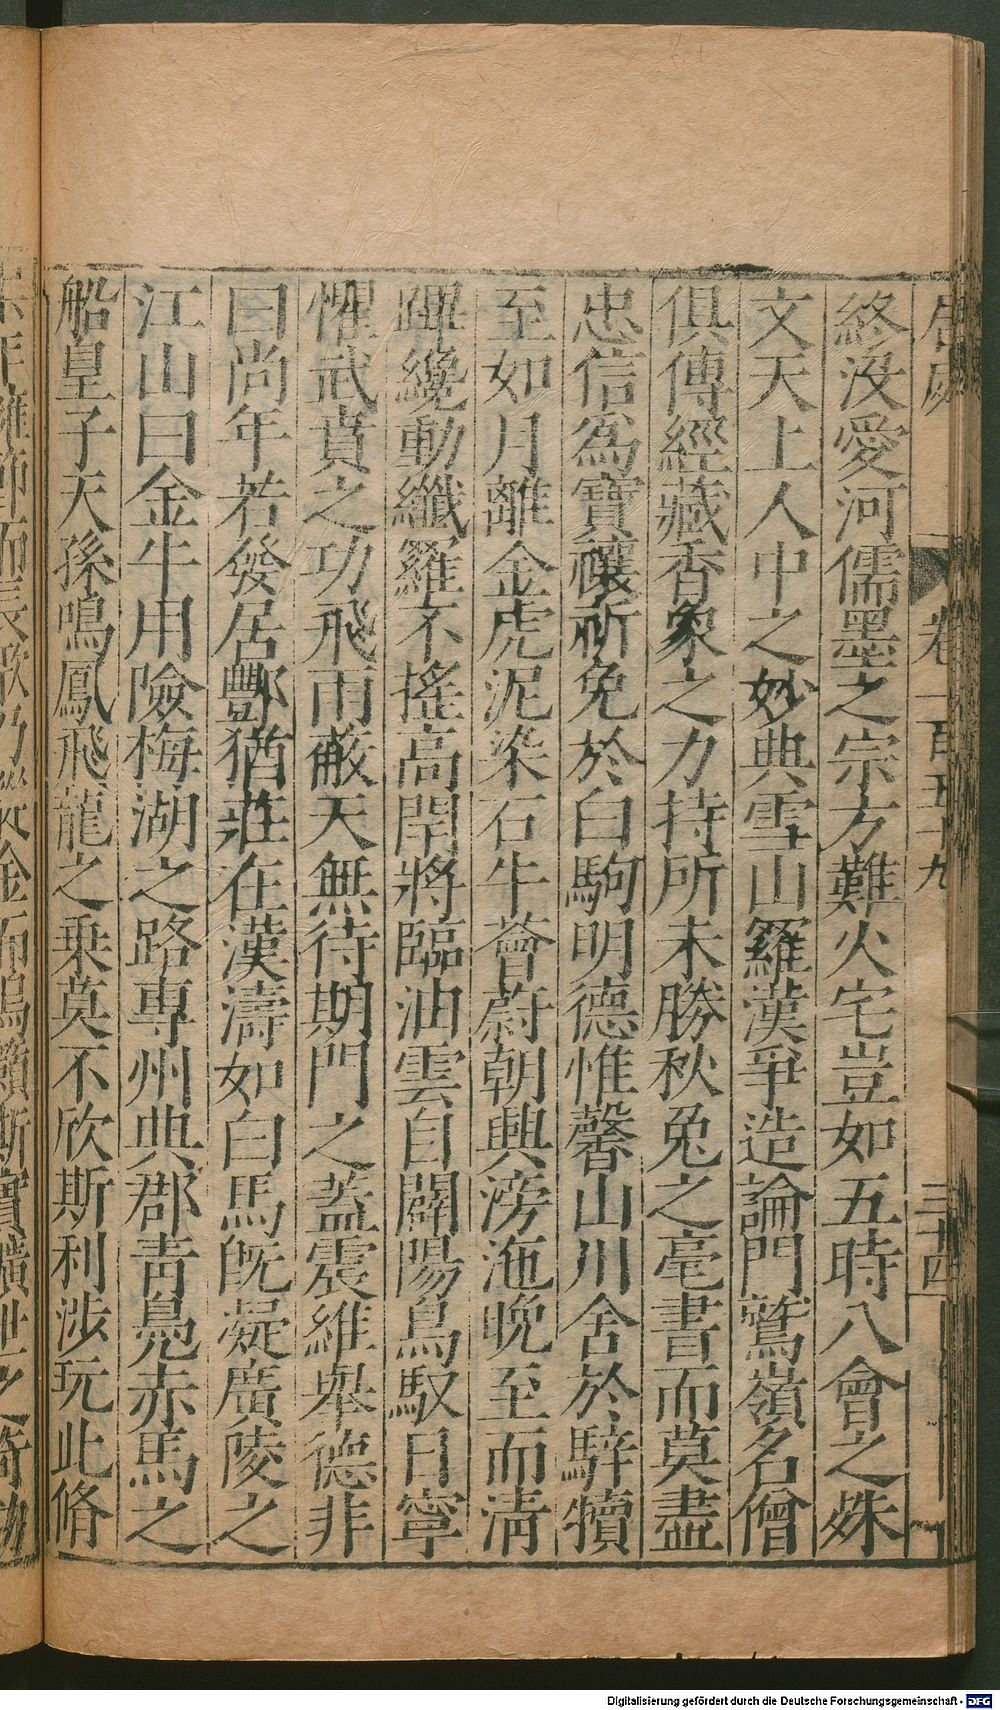 卷一百五十九
三十四
終没愛河儒墨之宗方難火宅豈如五時八會之殊
文天上人中之妙典雪山羅漢爭造論門鷲嶺名僧
俱傳經藏香象之力持所未勝秋兔之毫書而莫盡
忠信為寶禳祈免於白駒明德惟馨山川舍於騂犢
至如月離金虎泥染石牛薈蔚朝興滂沲晚至而清
蹕纔動纖羅不搖高閈將臨油雲自闢陽烏馭日寧
懼武賁之功飛雨蔽天無待期門之蓋震維舉德非
曰尚年若發居酆猶莊在漢濤如白馬旣礙廣陵之
江山曰金牛用險梅湖之路專州典郡青鳧赤馬之
船皇子天孫鳴鳳飛龍之乗莫不欣斯利涉玩此脩
Digitalisierung gefördert durch die Deutsche Forschungsgemeinschaft - DFG